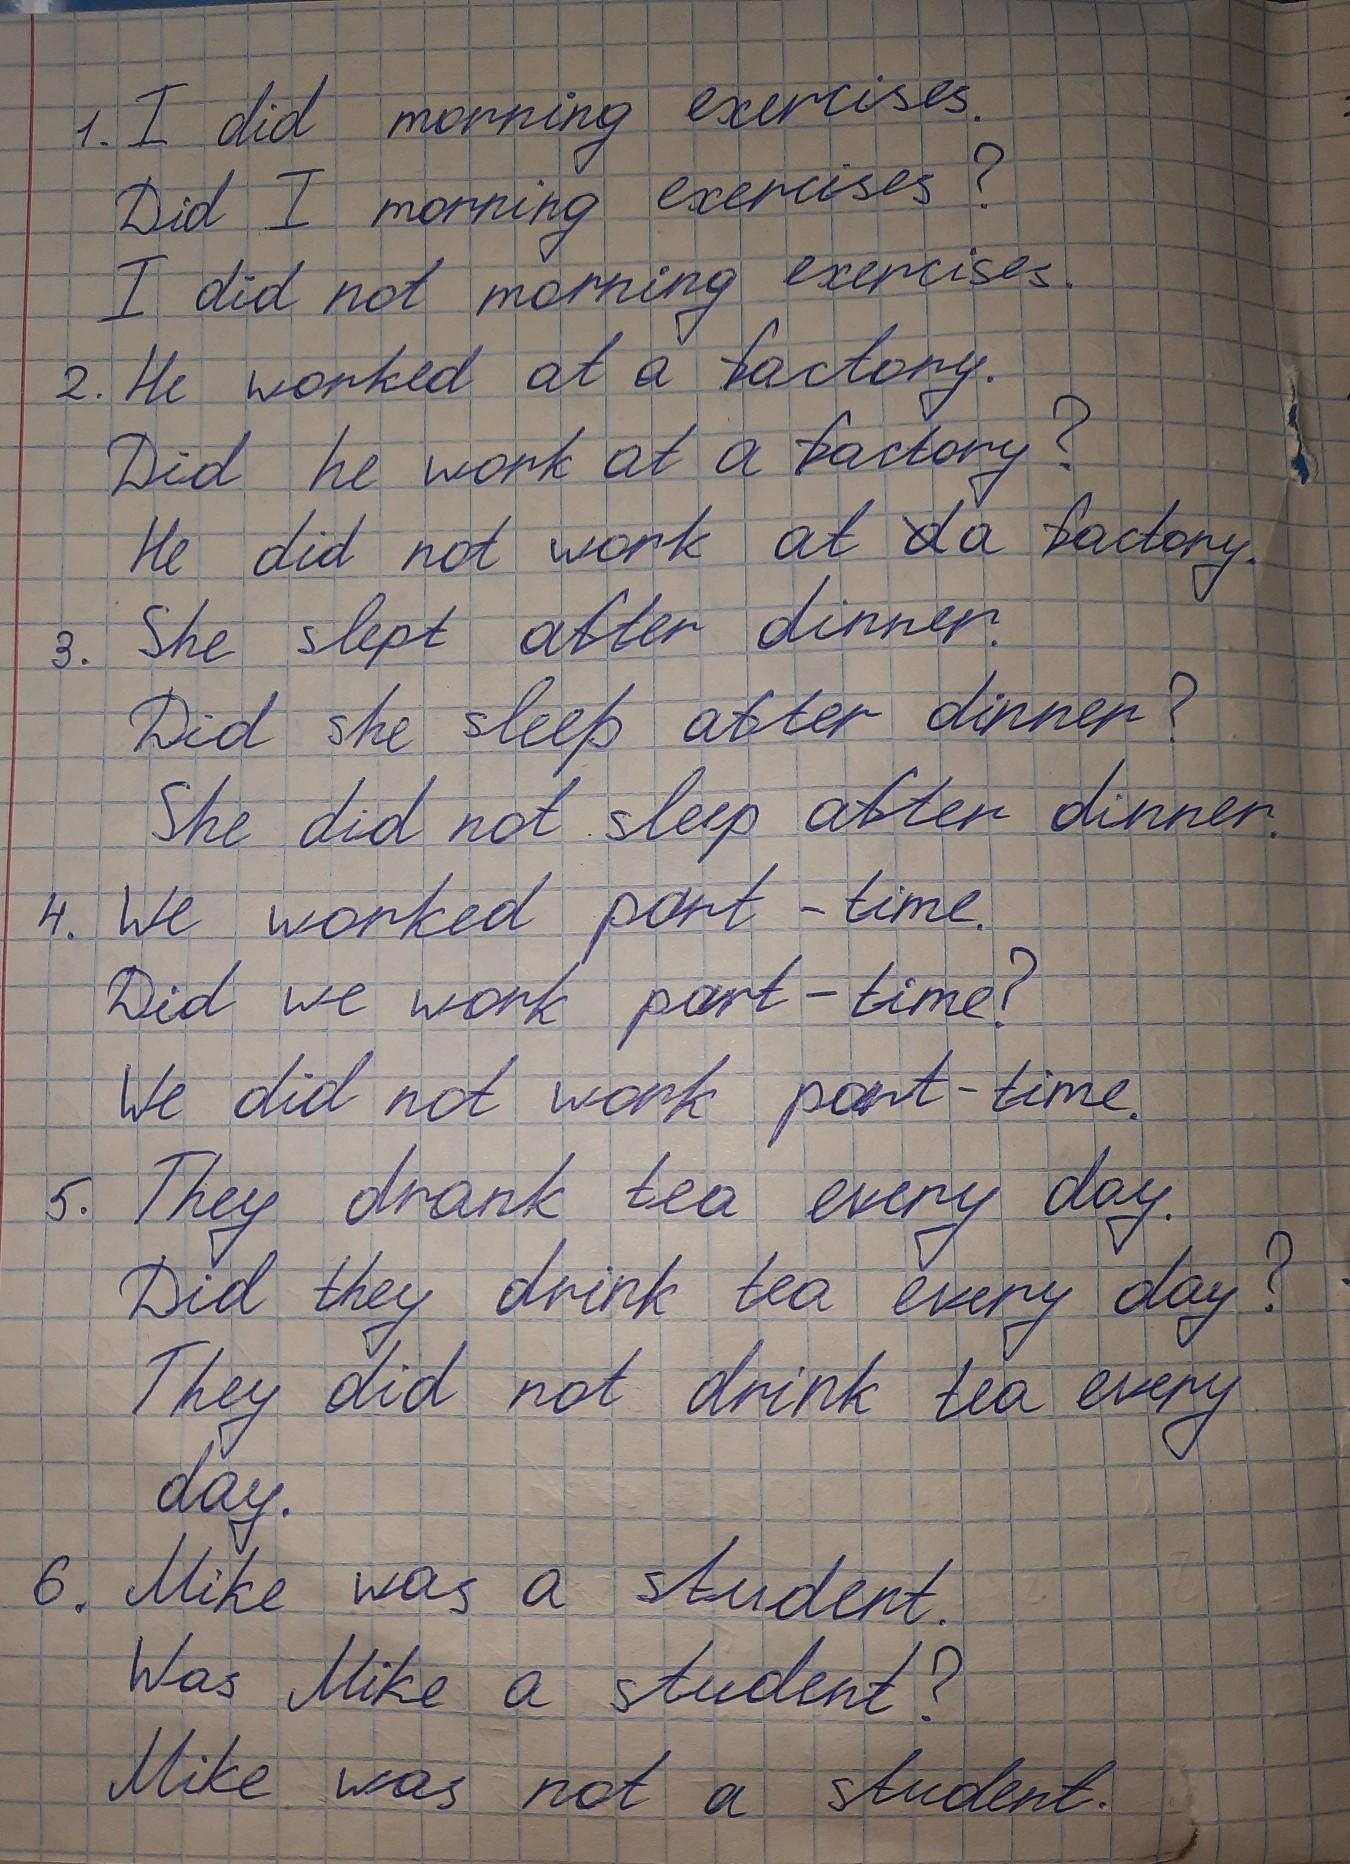 1. I did morning exercises.
Did I morning exercises?
I did not morning exercises.
2. He worked at a factory.
Did he work at a factory?
He did not work at a factory.
3. She slept after dinner.
Did she sleep after dinner?
She did not sleep after dinner.
4. We worked part-time.
Did we work part-time?
We did not work part-time.
5. They drank tea every day.
Did they drink tea every day?
They did not drink tea every
day.
6. Mike was a student.
Was Mike a student?
Mike was not a student.